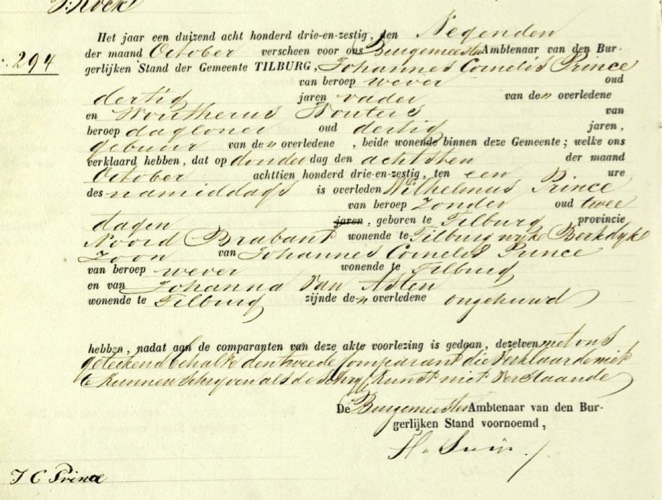 Het jaar een duizend acht honderd drie-en-zestig, den Negenden
294 der maand October verscheen voor ons Burgemeester Ambtenaar van den Bur-
gerlijken Stand der Gemeente TILBURG, Johannes Cornelis Prince
van beroep wever oud
dertig jaren vader van de„ overledene
en Woutherus Wouters van
beroep daglooner oud dertig jaren,
gebuur van de„ overledene, beide wonende binnen deze Gemeente; welke ons
verklaard hebben, dat op donderdag den achtsten der maand
October achttien honderd drie-en-zestig, ten een ure
des namiddags is overleden Wilhelmus Prince
van beroep Zonder oud twee
dagen jaren, geboren te Tilburg provincie
Noord Brabant wonende te Tilburg wijk Berkdijk
Zoon van Johannes Cornelis Prince
van beroep wever wonende te Tilburg
en van Johanna Van Asten
wonende te Tilburg zijnde de„ overledene ongehuwd
hebben, nadat aan de comparanten van deze akte voorlezing is gedaan, dezelven met ons
geteekend behalve den tweede Comparant die verklaarde niet
te kunnen schrijven als de schrijfkunst niet verstaande
De Burgemeester Ambtenaar van den Bur-
gerlijken Stand voornoemd,
J C Prince